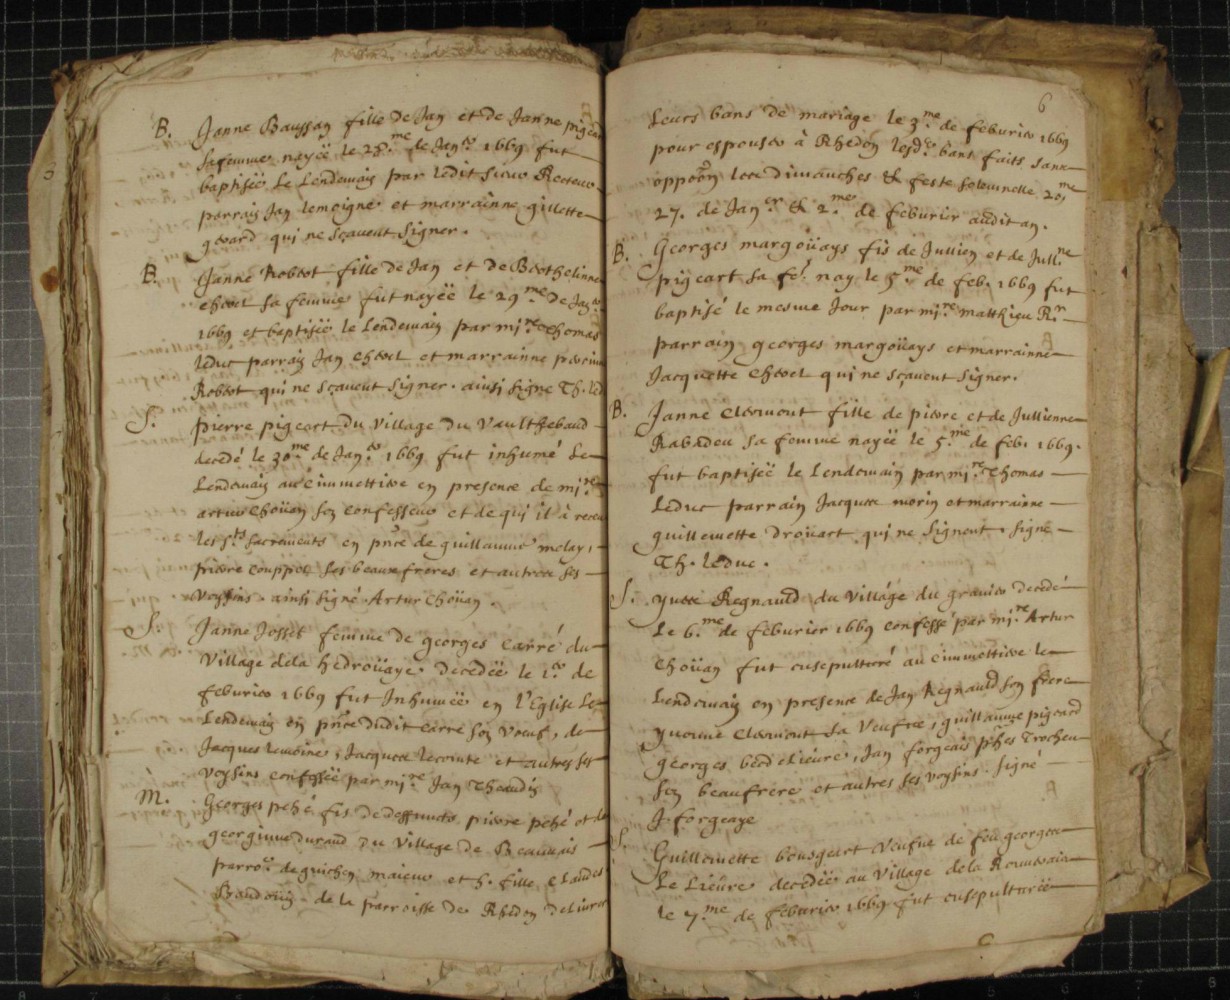 B. Janne Baussan fille de Jan et de Janne pigeart
sa femme nayëe le 28.me de Jan.er 1669 fut
baptisëe Le Lendemain par ledit sieur Recteur
parrain Jan lemoigne et marrainne gillette
gerard qui ne sçavent signer.
B. Janne Robert fille de Jan et de Berthelinne
cheval sa femme fut nayëe le 29.me de Jan.er
1669 et baptisëe le Lendemain par mi.re Thomas
leduc parrain Jan cheval et marrainne
Robert qui ne sçavent signer. ainsi signe Th. led
S. pierre pigeart du village du Vauthebaud
decedé le 30.me de Jan.er 1669 fut inhumé Le
Lendemain au cimmettiere en presence de mi.re
artur Choüan son confesseur et de qui il à receu
les s.ts sacrements en pñce de guillaume melay,
pierre couppel ses beaux freres et autres ses
voysins. ainsi signé. Artur Choüan.
S. Janne Josset femme de georges Carré du
village dela hedroüaye decedëe le 1.er de
feburier 1669 fut Inhumëe en l'Eglise Le
Lendemain en pñce dudit carre son veuf, de
Jacques Lemoine, Jacques lecointe et autres ses
voysins confessëe par mi.re Jan Theaudin
M. Georges pehé fis de deffuncts pierre pehé et de
georginne durand du village de Beauvais
parro.e de guichen maieur et h. fille claudes
Baudouin de la parroisse de Rhedon delivrer
6
Leurs bans de mariage le 3.me de feburier 1669
pour espouser à Rhedon lesd.ts bans faits sans
oppõn les dimanches & feste solemnelle 20.me
27. de Jan.er & 2.me de feburier audit an.
B. Georges margoüays fis de Jullien et de Jull.ne
pigeart sa fe. nay le 5.me de feb. 1669 fut
baptisé le mesme Jour par mi.re matthieu R.
parrain georges margoüays et marrainne
Jacquette cheval qui ne sçavent signer.
B. Janne Clermont fille de pierre et de Jullienne
Rabadeu sa femme nayëe le 5.me de feb. 1669.
fut baptisëe le Lendemain par mi.re Thomas
Leduc parrain Jacques morin et marrainne
guillemette Droüart qui ne signent. signé
Th. leduc.
S. yves Regnaud du village du gravier decedé
Le 6.me de feburier 1669 confessé par mi.re Artur
Choüan fut ensepulturé au cimmettiere le
Lendemain en presence de Jan Regnaud son frere
yvonne Clermont sa veufve, guillaume pigeard
georges becdelievre, Jan forgeais Trocheu
son beaufrere et autres ses voysins. signé
J. forgeaye
S. Guillemette bougeart veufve de feu georges
Le Lievre decedëe au village dela
le 7.me de feburier 1669 fut ensepulturëe